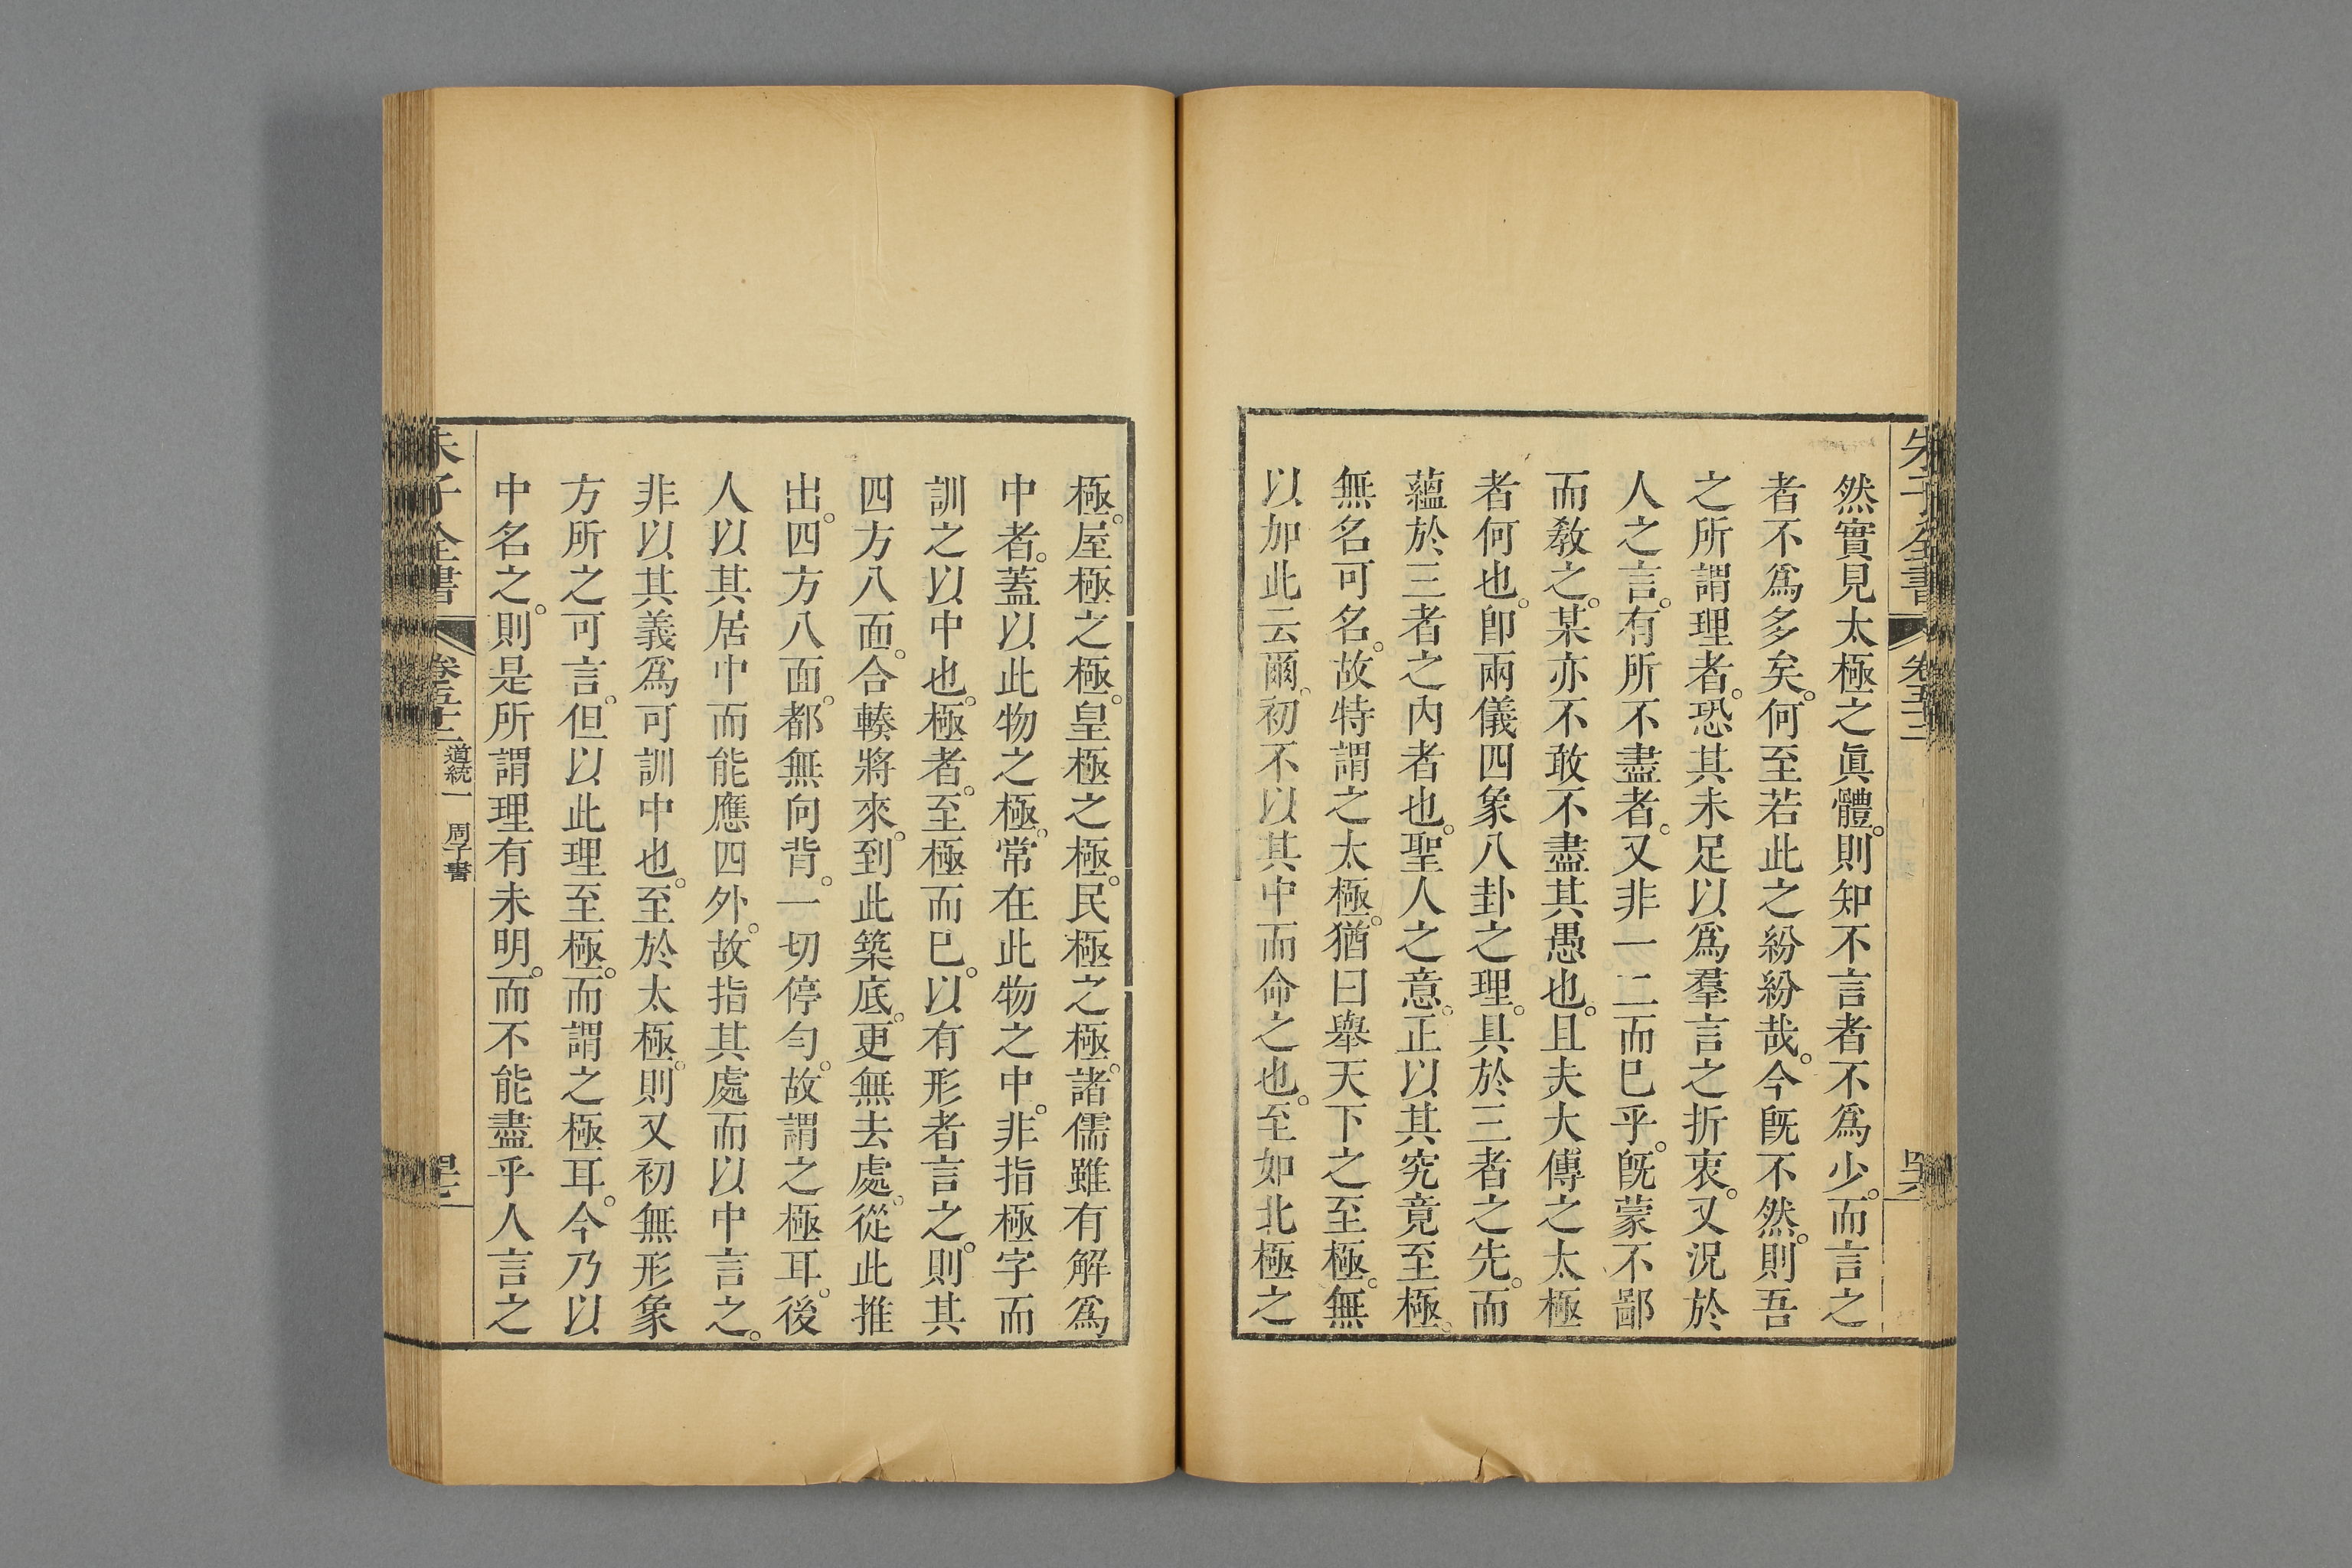 朱子全書 卷五十二 四六
然實見太極之眞體。則知不言者不爲少。而言之
者不爲多矣。何至若此之紛紛哉。今旣不然。則吾
之所謂理者。恐其未足以爲羣言之折衷。又況於
人之言。有所不盡者。又非一二而已乎。旣蒙不鄙
而敎之。某亦不敢不盡其愚也。且夫大傳之太極
者何也。卽兩儀四象八卦之理。具於三者之先。而
蘊於三者之內者也。聖人之意。正以其究竟至極。
無名可名。故特謂之太極。猶曰舉天下之至極。無
以加此云爾。初不以其中而命之也。至如北極之
極。屋極之極。皇極之極。民極之極。諸儒雖有解爲
中者。蓋以此物之極。常在此物之中。非指極字而
訓之以中也。極者。至極而已。以有形者言之。則其
四方八面。合輳將來。到此築底。更無去處。從此推
出。四方八面。都無向背。一切停勻。故謂之極耳。後
人以其居中而能應四外。故指其處而以中言之。
非以其義爲可訓中也。至於太極。則又初無形象
方所之可言。但以此理至極。而謂之極耳。今乃以
中名之。則是所謂理有未明。而不能盡乎人言之
朱子全書 卷五十二 道統一 周子書